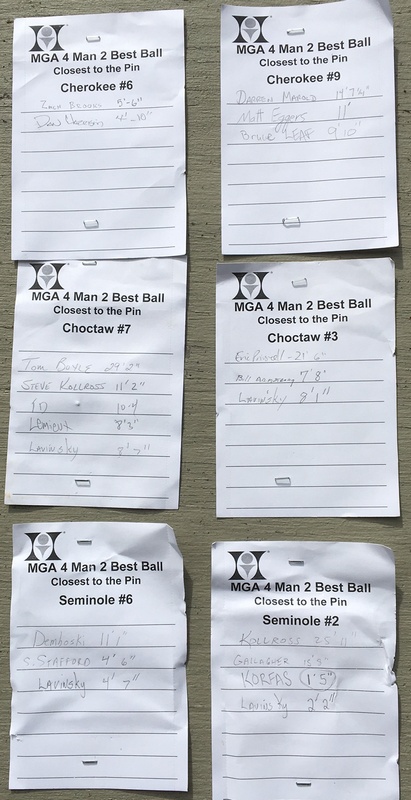 MGA 4 Man 2 Best Ball
Closest to the Pin
Cherokee #6
Zach Brooks 5'-6"
Dan 4'-10"
MGA 4 Man 2 Best Ball
Closest to the Pin
Cherokee #9
Darron Marold 14' 7¼"
Matt Eggers 11'
Bruce LEAF 9'10"
MGA 4 Man 2 Best Ball
Closest to the Pin
Choctaw #7
Tom Boyle 29'2"
STEVE KOLLROSS 11'2"
10-4
LEMIEUX 8'8"
LAVINSKY 8'7"
MGA 4 Man 2 Best Ball
Closest to the Pin
Choctaw #3
- 21' 6"
Bill 7'8'
LAVINSKY 8'1"
MGA 4 Man 2 Best Ball
Closest to the Pin
Seminole #6
Demboski 11'1"
S. STAFFORD 4'6"
LAVINSKY 4'7"
MGA 4 Man 2 Best Ball
Closest to the Pin
Seminole #2
KOLLROSS 25'11"
GALLAGHER
KORFAS 1'5"
LAVINSKY 2'2"